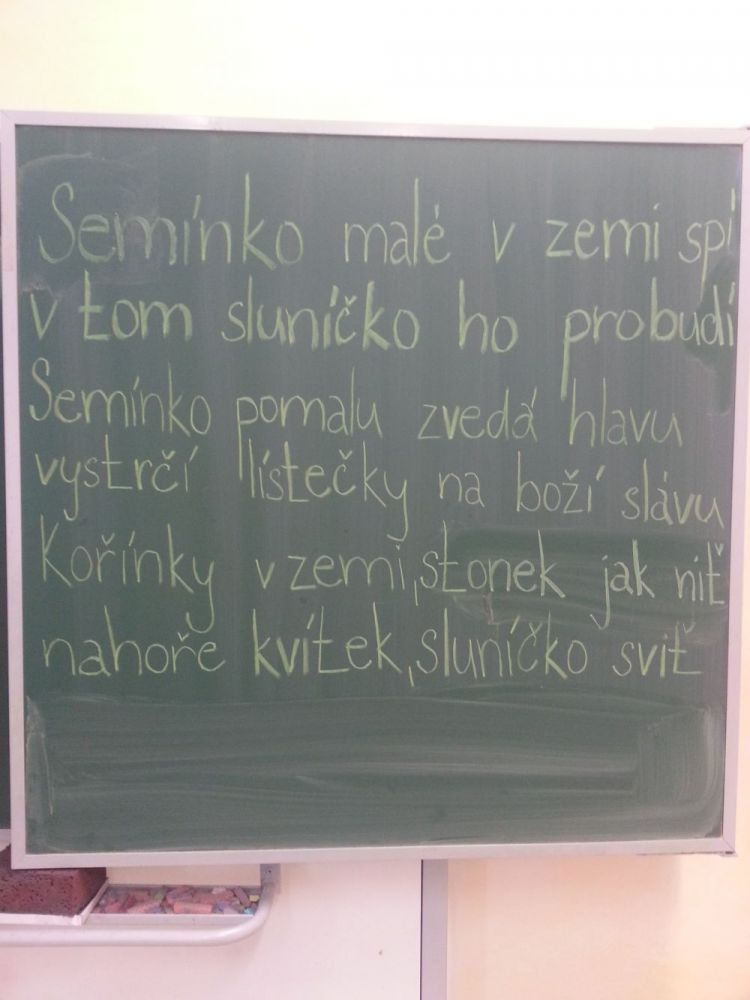 Semínko malé v zemi spí
v tom sluníčko ho probudí
Semínko pomalu zvedá hlavu
vystrčí lístečky na boží slávu
Kořínky v zemi, stonek jak niť
nahoře kvítek, sluníčko sviť